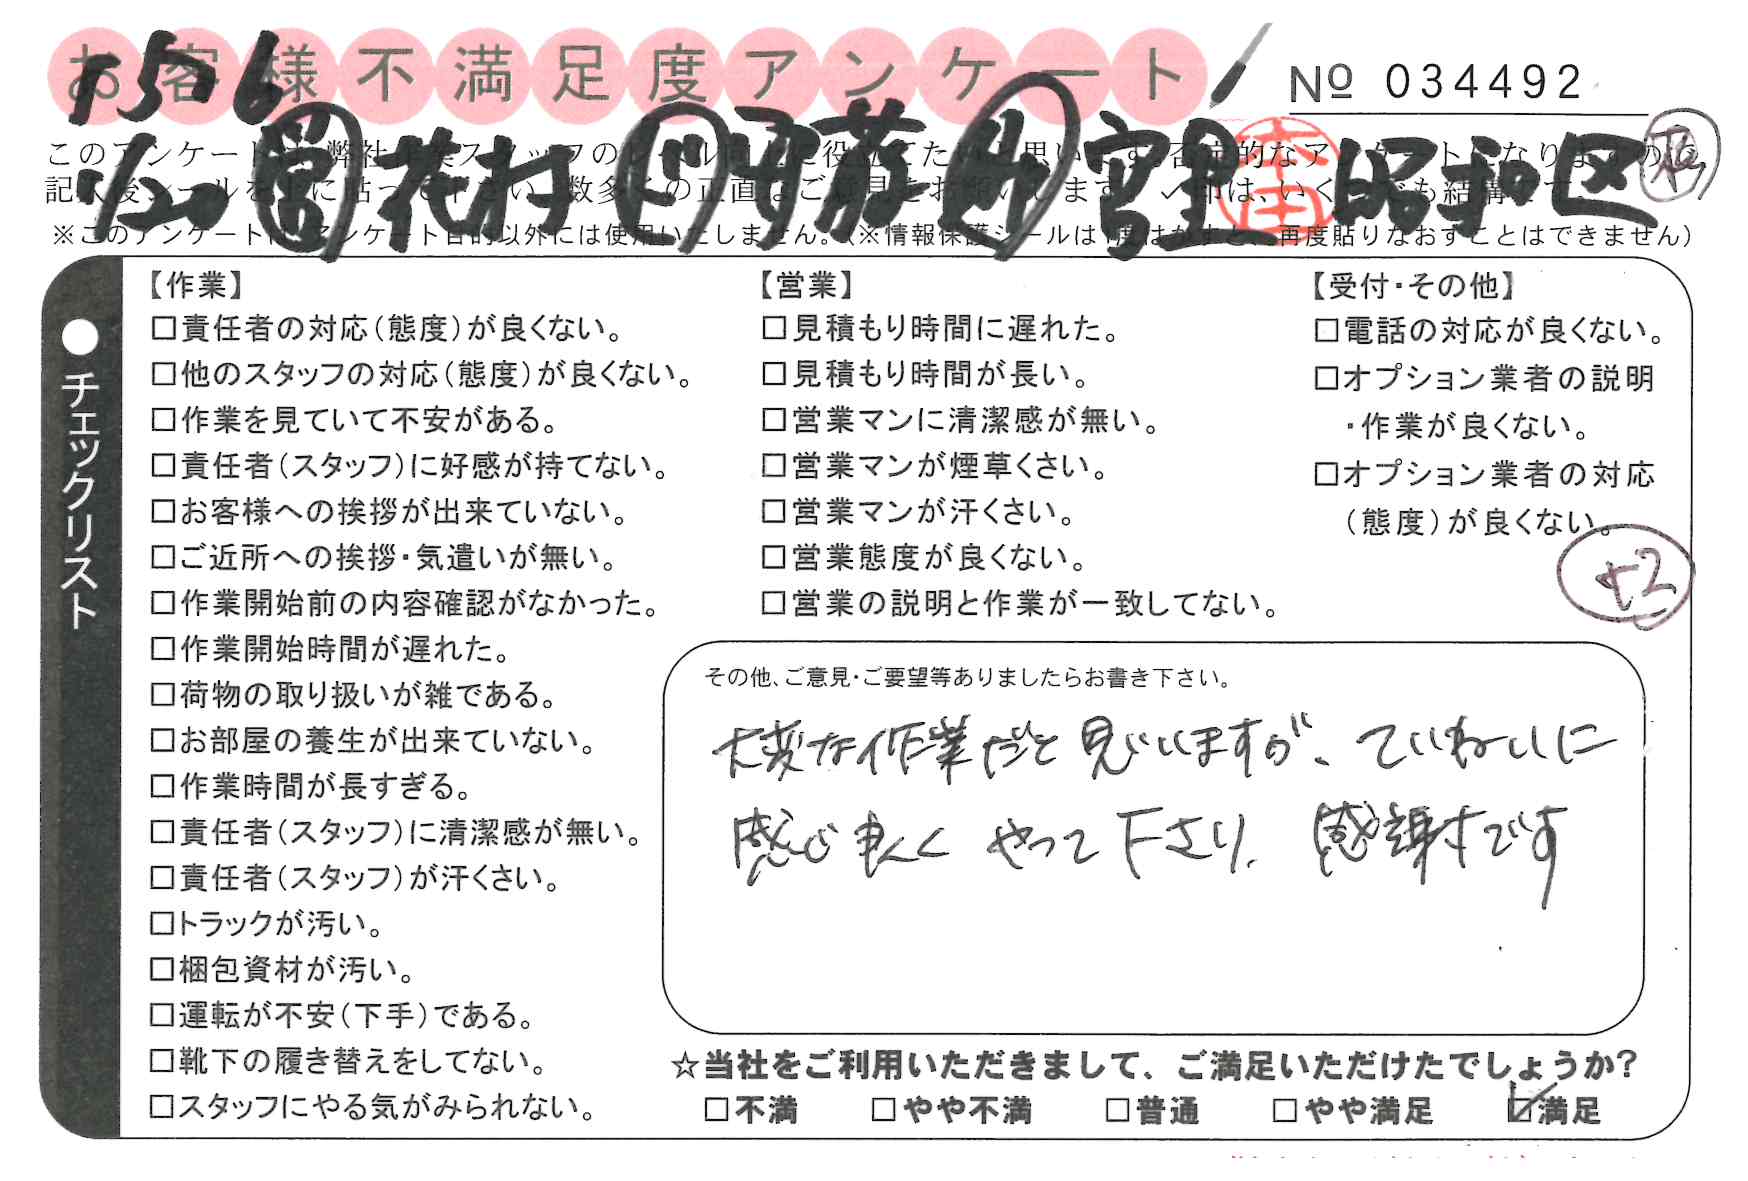 お客様不満足度アンケート
No 034492
1506
1/20 営 花村 ド 伊藤 作 宮里 本田 昭和区
このアンケートは、弊社作業スタッフのレベル向上に役立てたいと思います。否定的なアンケートになりますので、
記入後シールを上に貼って下さい。数多くの正直なご意見をお願いします。✓印は、いくつでも結構です。
※このアンケートは、アンケート目的以外には使用いたしません。（※情報保護シールは1度はがすと、再度貼りなおすことはできません）
●チェックリスト
【作業】
□責任者の対応（態度）が良くない。
□他のスタッフの対応（態度）が良くない。
□作業を見ていて不安がある。
□責任者（スタッフ）に好感が持てない。
□お客様への挨拶が出来ていない。
□ご近所への挨拶・気遣いが無い。
□作業開始前の内容確認がなかった。
□作業開始時間が遅れた。
□荷物の取り扱いが雑である。
□お部屋の養生が出来ていない。
□作業時間が長すぎる。
□責任者（スタッフ）に清潔感が無い。
□責任者（スタッフ）が汗くさい。
□トラックが汚い。
□梱包資材が汚い。
□運転が不安（下手）である。
□靴下の履き替えをしてない。
□スタッフにやる気がみられない。
【営業】
□見積もり時間に遅れた。
□見積もり時間が長い。
□営業マンに清潔感が無い。
□営業マンが煙草くさい。
□営業マンが汗くさい。
□営業態度が良くない。
□営業の説明と作業が一致してない。
【受付・その他】
□電話の対応が良くない。
□オプション業者の説明
・作業が良くない。
□オプション業者の対応
（態度）が良くない。
+2
その他、ご意見・ご要望等ありましたらお書き下さい。
大変な作業だと思いますが、ていねいに
感じ良くやって下さり、感謝です
☆当社をご利用いただきまして、ご満足いただけたでしょうか？
□不満 □やや不満 □普通 □やや満足 ☑満足